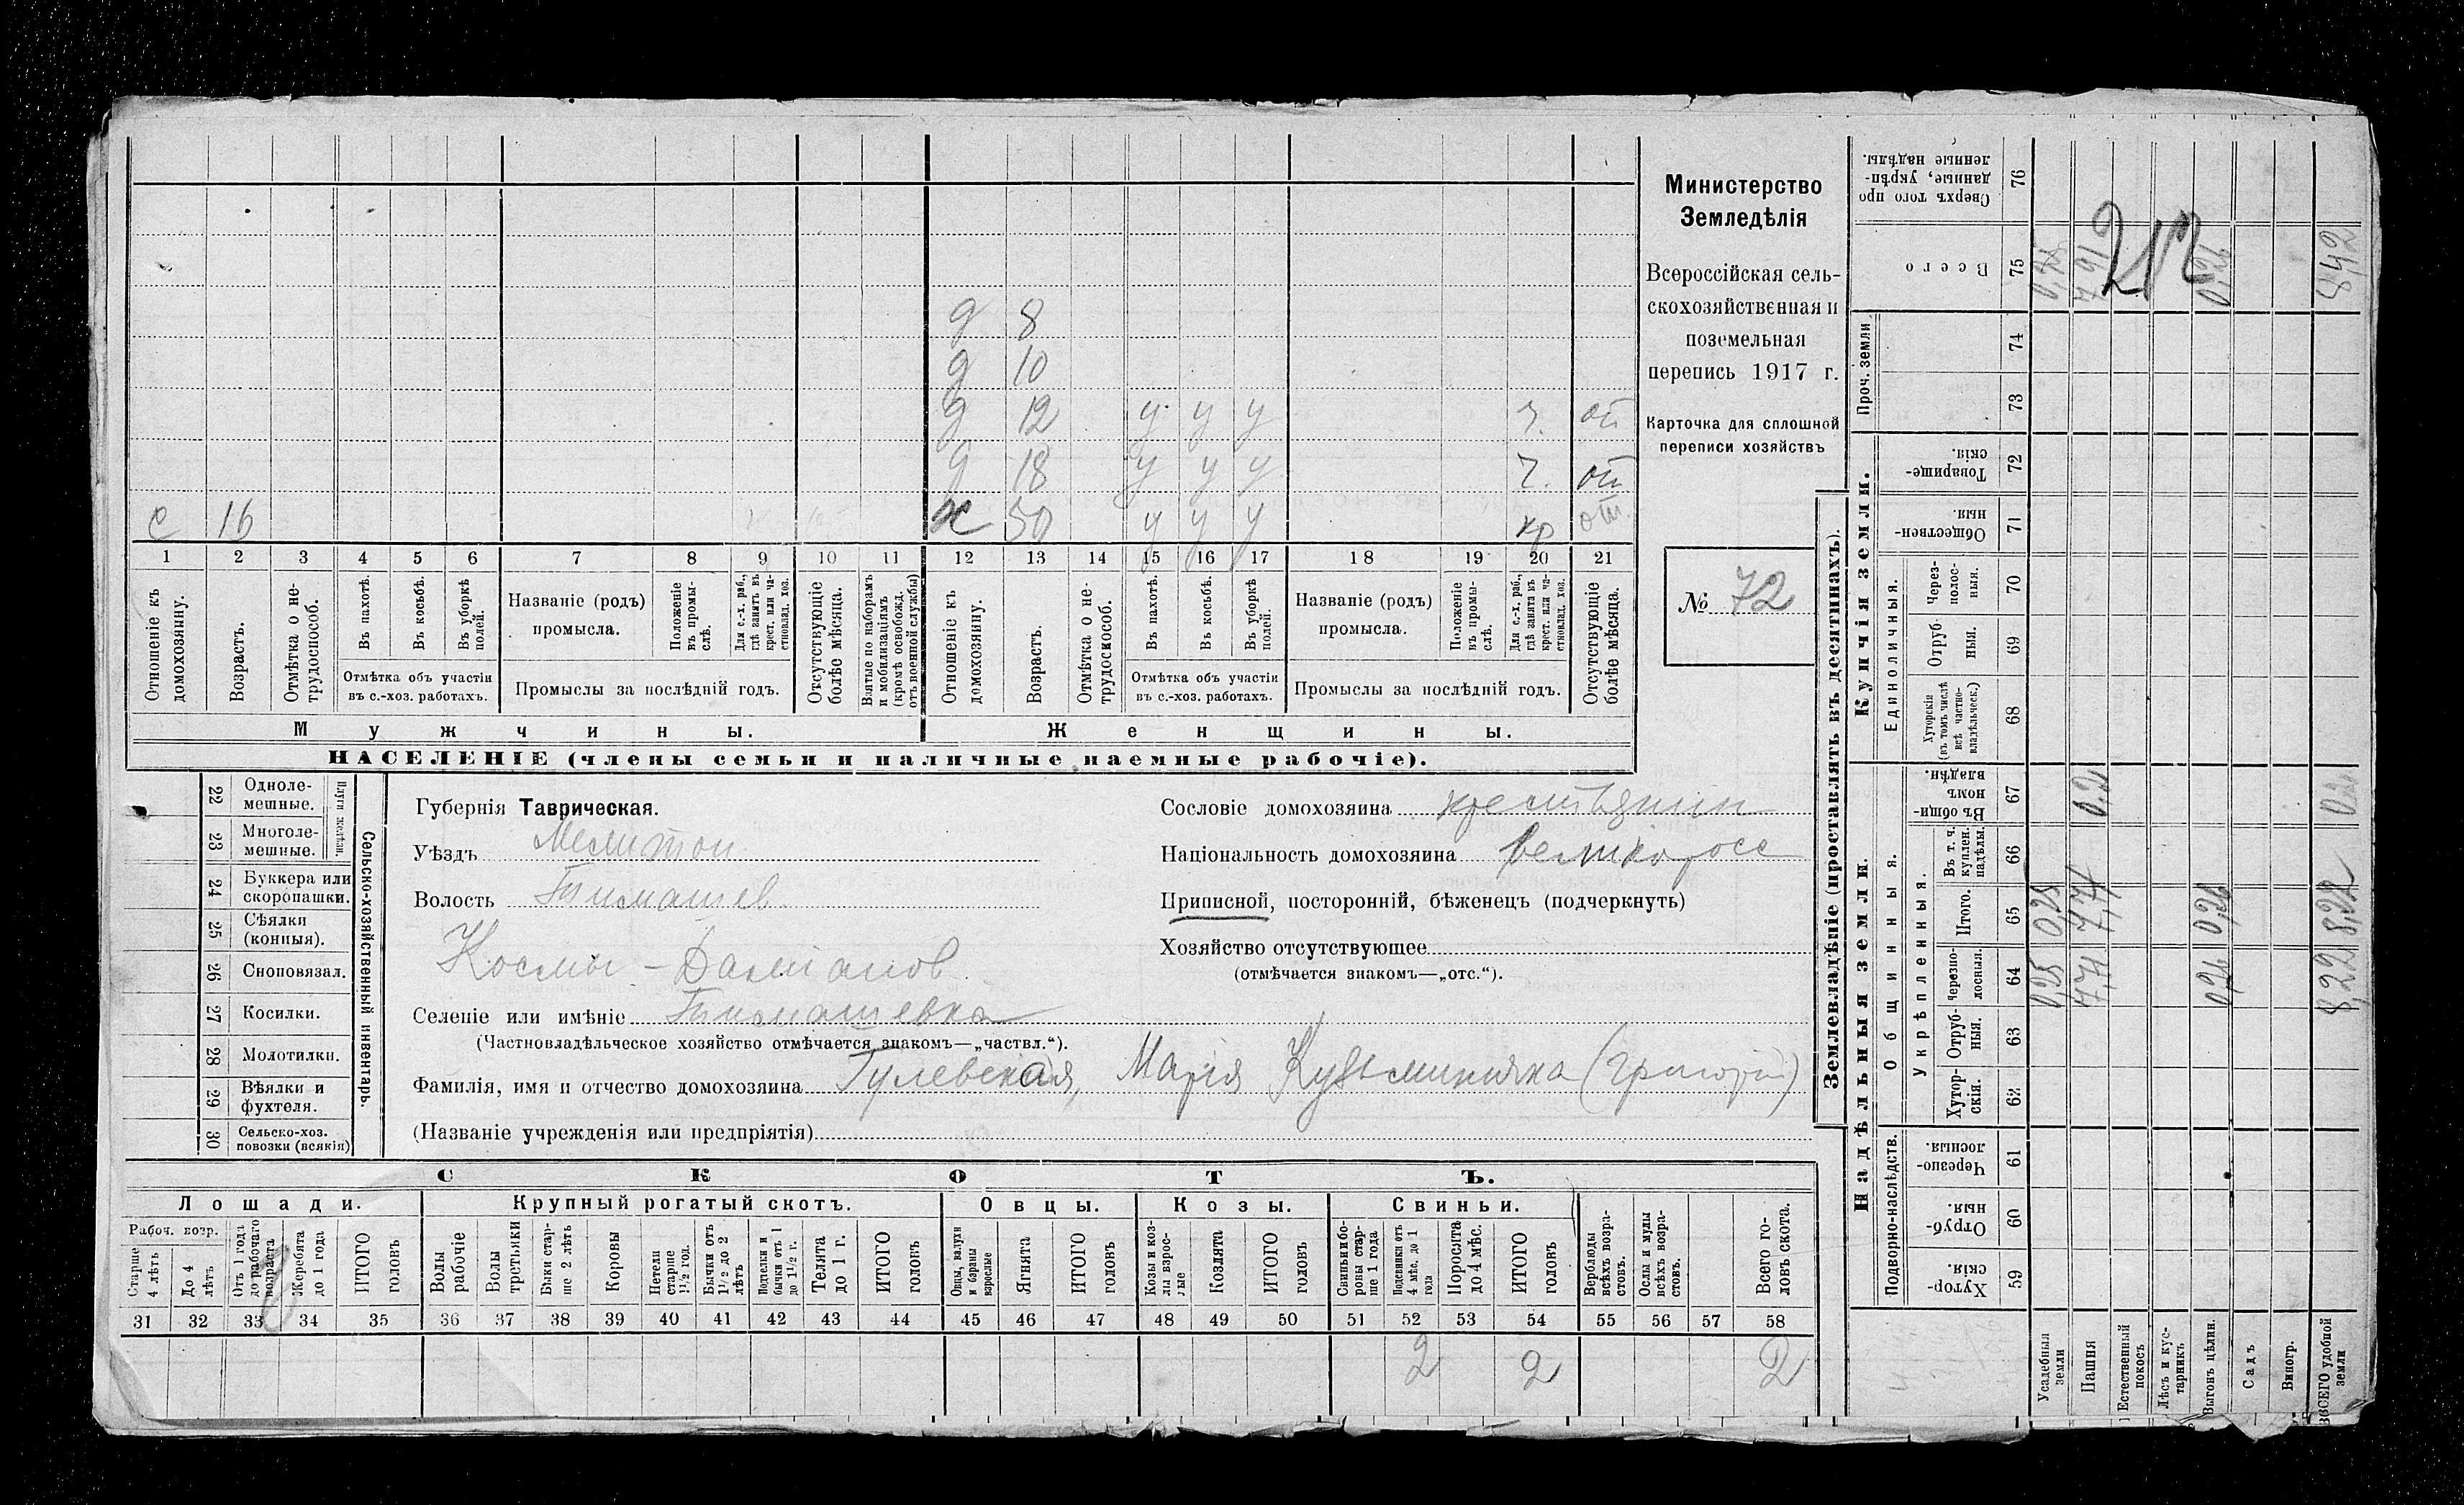 Министерство
Земледѣлія
Всероссійская сель-
скохозяйственная и
поземельная
перепись 1917 г.
Карточка для сплошной
переписи хозяйствъ
№ 72
д 8
д 10
д 12 у у у ч. от
д 18 у у у ч. от
с 16 ж 50 у у у кр от.
1 2 3 4 5 6 7 8 9 10 11 12 13 14 15 16 17 18 19 20 21
Отношеніе къ домохозяину.
Возрастъ.
Отмѣтка о не-трудоспособ.
Въ пахотѣ.
Въ косьбѣ.
Въ уборкѣ полей.
Отмѣтка объ участіи
въ с.-хоз. работахъ.
Названіе (родъ)
промысла.
Положеніе въ промы-слѣ.
Для с.-х. раб., гдѣ занятъ въ крест. или ча-стновлад. хоз.
Промыслы за послѣдній годъ.
Отсутствующіе болѣе мѣсяца.
Взятые по наборамъ и мобилизаціямъ (кромѣ освобожд. отъ военной службы)
Отношеніе къ домохозяину.
Возрастъ.
Отмѣтка о не-трудоспособ.
Въ пахотѣ.
Въ косьбѣ.
Въ уборкѣ полей.
Отмѣтка объ участіи
въ с.-хоз. работахъ.
Названіе (родъ)
промысла.
Положеніе въ промы-слѣ.
Для с.-х. раб., гдѣ занята въ крест. или ча-стновлад. хоз.
Промыслы за послѣдній годъ.
Отсутствующіе болѣе мѣсяца.
Мужчины. Женщины.
НАСЕЛЕНІЕ (члены семьи и наличные наемные рабочіе).
Сельско-хозяйственный инвентарь.
Плуги желѣзн.
22 Одноле-мешные.
23 Многоле-мешные.
24 Буккера или скоропашки.
25 Сѣялки (конныя).
26 Сноповязал.
27 Косилки.
28 Молотилки.
29 Вѣялки и фухтеля.
30 Сельско-хоз. повозки (всякія)
Губернія Таврическая.
Уѣздъ Мелитоп
Волость Тимашев.
Космы-Дамианов
Селеніе или имѣніе Тимашевка
(Частновладѣльческое хозяйство отмѣчается знакомъ—„частвл.“).
Фамилія, имя и отчество домохозяина Гулевская, Марія Кузьминична (Григорій)
(Названіе учрежденія или предпріятія)
Сословіе домохозяина крестьянин
Національность домохозяина великоросс
Приписной, посторонній, бѣженецъ (подчеркнуть)
Хозяйство отсутствующее
(отмѣчается знакомъ—„отс.“).
СКОТЪ.
Лошади. Крупный рогатый скотъ. Овцы. Козы. Свиньи.
Рабоч. возр.
Старше 4 лѣтъ
До 4 лѣтъ
Отъ 1 года до рабочаго возраста
Жеребята до 1 года
ИТОГО головъ
Волы рабочіе
Волы третьяки
Быки стар-ше 2 лѣтъ
Коровы
Нетели старше 1½ год.
Бычки отъ 1½ до 2 лѣтъ
Подтелки и бычки отъ 1 до 1½ г.
Телята до 1 г.
ИТОГО головъ
Овцы, валухи и бараны взрослые
Ягнята
ИТОГО головъ
Козы и коз-лы взрос-лые
Козлята
ИТОГО головъ
Свиньи и бо-ровы стар-ше 1 года
Подсвинки отъ 4 мѣс. до 1 года
Поросята до 4 мѣс.
ИТОГО головъ
Верблюды всѣхъ возра-стовъ.
Ослы и мулы всѣхъ возра-стовъ.
Всего го-ловъ скота.
31 32 33 34 35 36 37 38 39 40 41 42 43 44 45 46 47 48 49 50 51 52 53 54 55 56 57 58
2 2 2
Землевладѣніе (проставлять въ десятинахъ).
Надѣльныя земли. Купчія земли. Проч. земли
Подворно-наслѣдств.
Общинныя.
Укрѣпленныя.
Единоличныя.
59 Хутор-скія.
60 Отруб-ныя.
61 Черезпо-лосныя.
62 Хутор-скія.
63 Отруб-ныя.
64 Черезпо-лосныя.
65 Итого.
66 Въ т. ч. куплен. надѣлы.
67 Въ общи-номъ владѣн.
68 Хуторскія (въ томъ числѣ всѣ частно-владѣльческ.)
69 Отруб-ныя.
70 Через-полос-ныя.
71 Обществен-ныя.
72 Товарище-скія.
73
74
75 Всего
76 Сверхъ того про-данные, укрѣп-ленные надѣлы.
Усадебныя земли 0,25 0,25 0,25
Пашня 7,71 7,71 0,2 7,91
Естественный покосъ
Лѣсъ и кус-тарникъ
Выгонъ цѣлин. 0,26 0,26 0,26
Садъ
Виногр.
ВСЕГО удобной земли 8,22 8,22 0,2 8,42
212